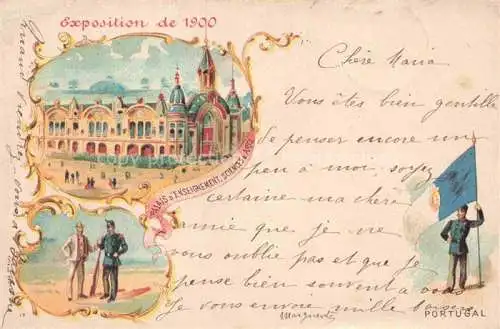 Exposition de 1900
PALAIS D'ENSEIGNEMENT, SCIENCES & ARTS
Chère Maria
Vous êtes bien gentille
de penser encore un
peu à moi, soyez
certaine ma chère
amie que je ne
vous oublie pas et que je
pense bien souvent à vous
Je vous envoie mille baisers
Marguerite
PORTUGAL